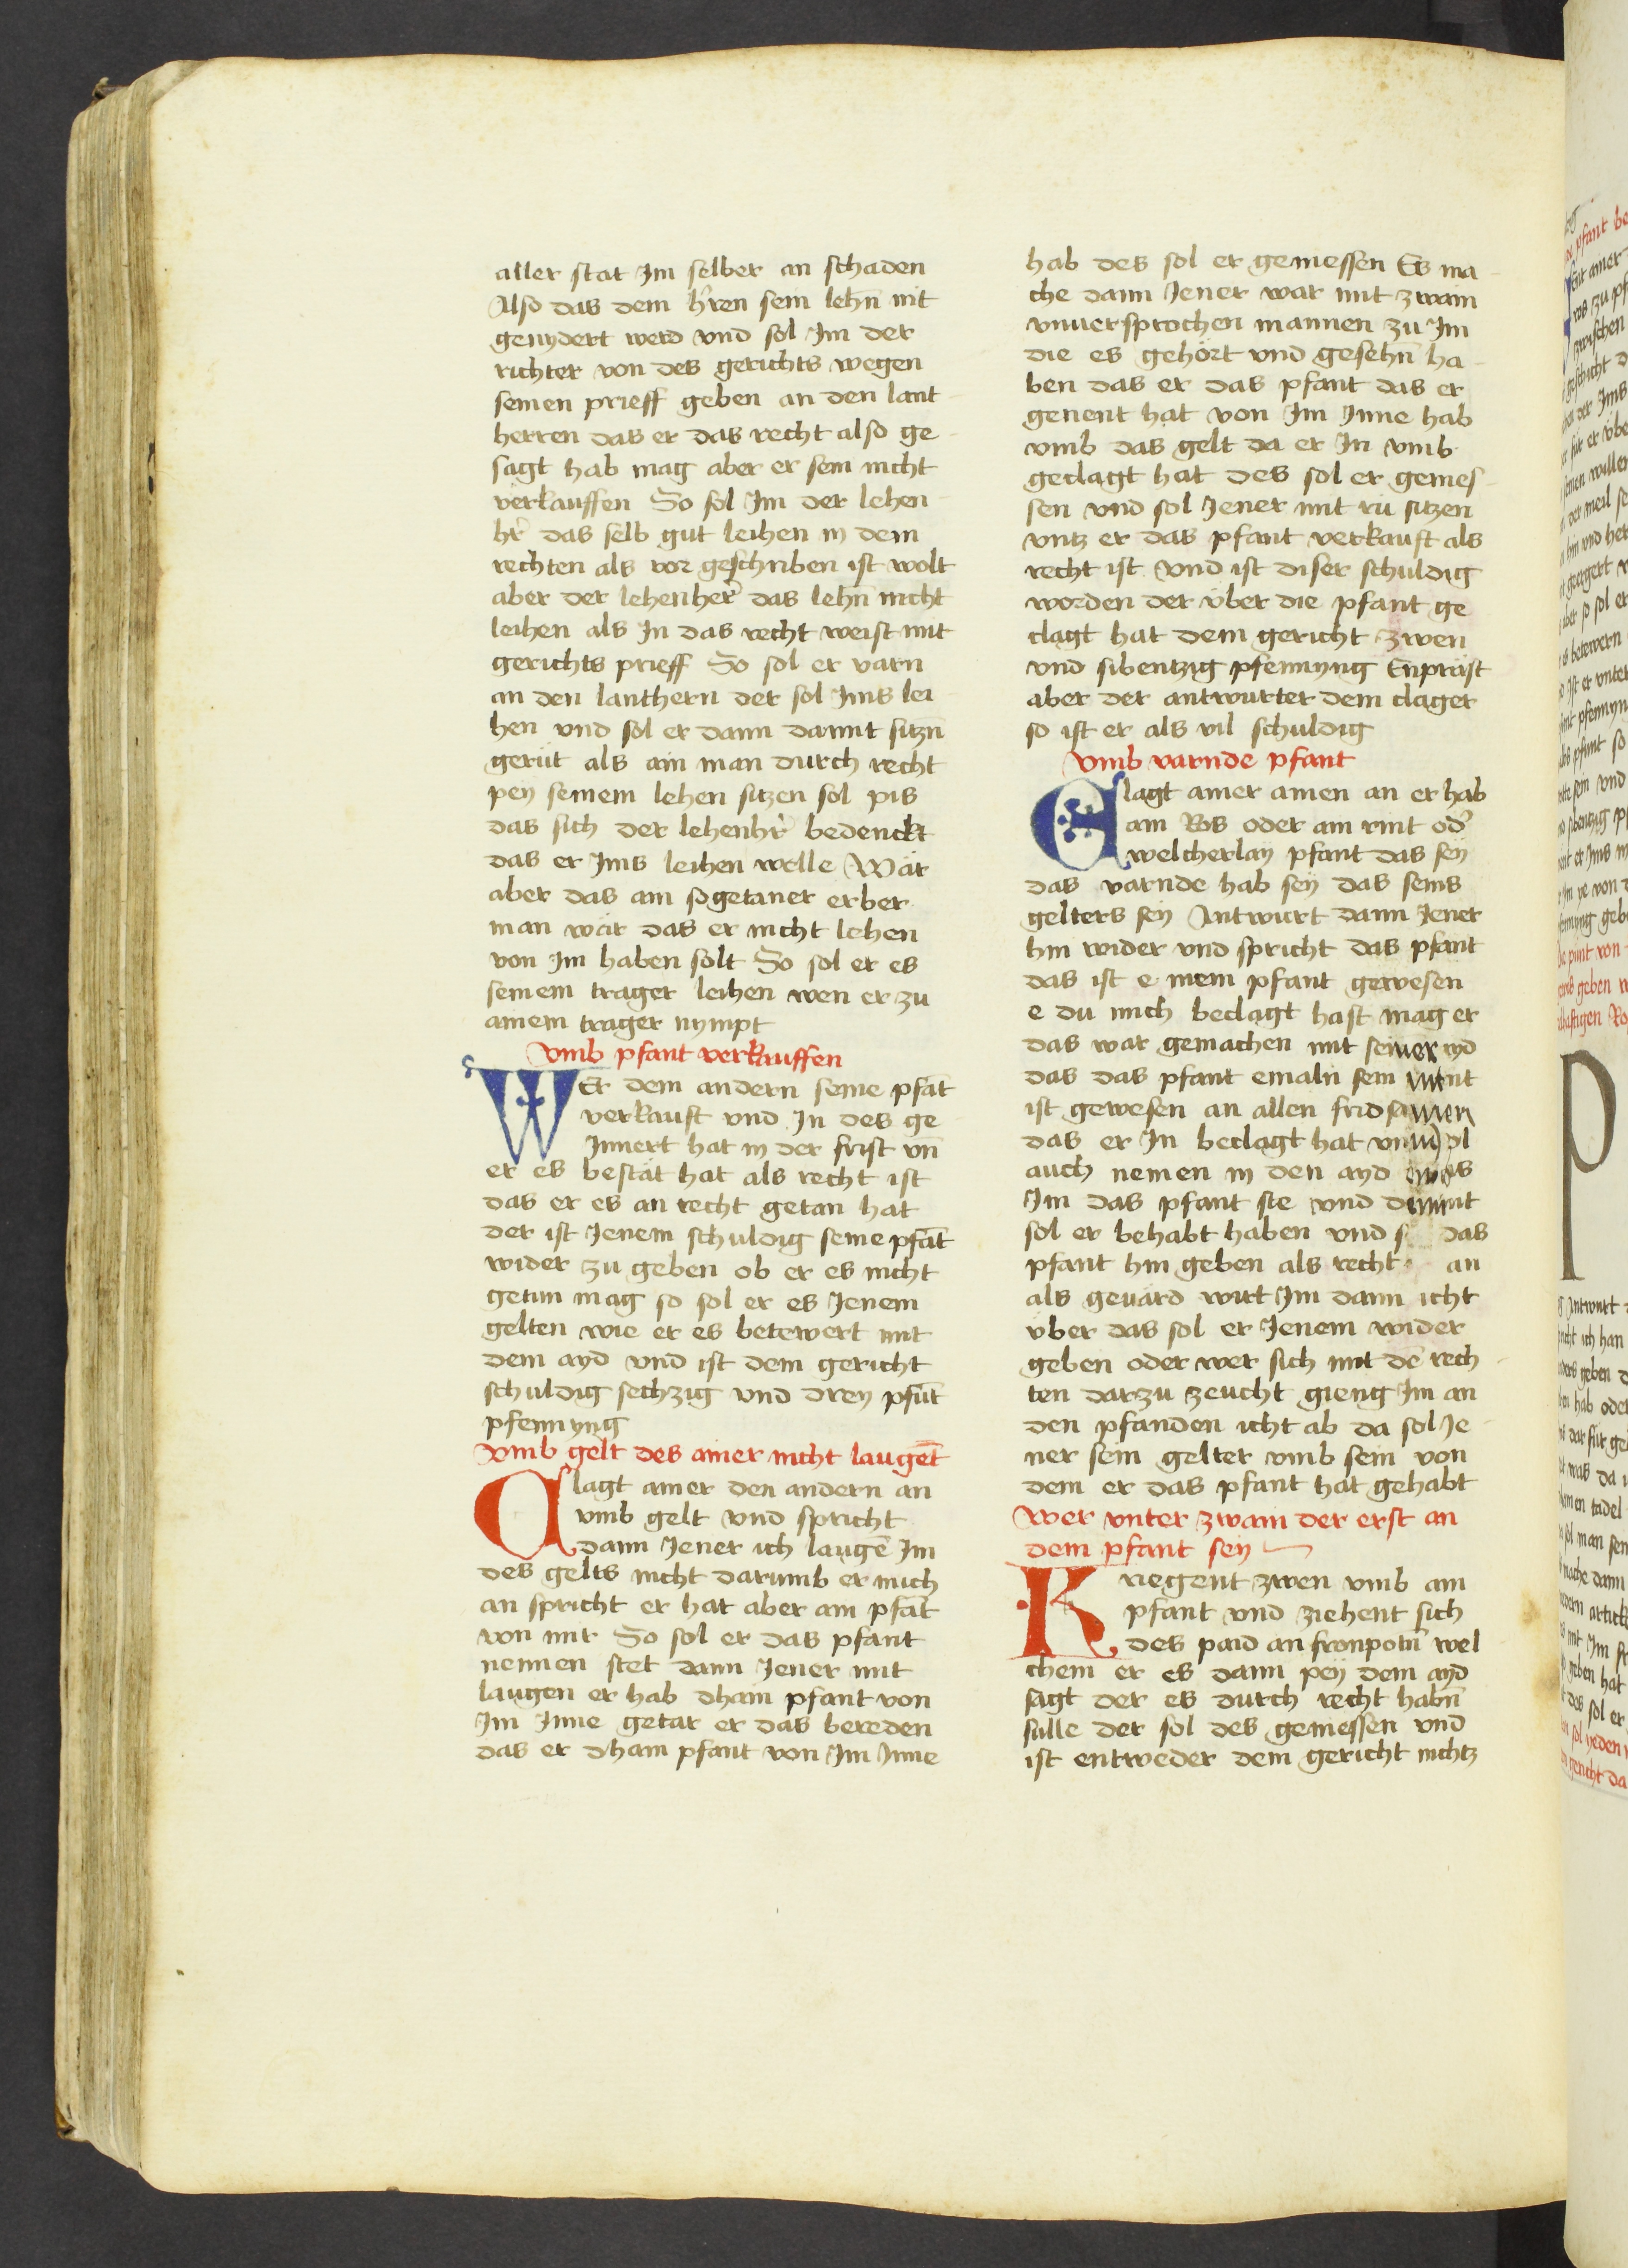 aller stat Im selber an schaden
Also das dem hren sein lehn nit
genydert werd vnd sol Im der
richter von des gerichts wegen
seinen prieff geben an den lant
herren das er das recht also ge
sagt hab mag aber er sein nicht
verkauffen So sol Im der lehen
hr das selb gut leihen in dem
rechten als vor geschriben ist wolt
aber der lehenher das lehn nicht
leihen als In das recht weist mit
gerichts prieff So sol er varn
an den lanthern der sol Ims lei
hen vnd sol er dann damit sitzn
gerüt als ain man durch recht
pey seinem lehen sitzen sol pis
das sich der lehenhr bedenckt
das er Ims leihen welle Wär
aber das ain sogetaner erber
man wär das er nicht lehen
von Im haben solt So sol er es
seinem trager leihen wen er zu
ainem trager nympt
Vmb pfant verkauffen
WEr dem andern seine pfāt
verkauft vnd In des ge
Innert hat in der frist vn̄
er es bestät hat als recht ist
das er es an recht getan hat
der ist Jenem schuldig seine pfāt
wider zu geben ob er es nicht
getun mag so sol er es Jenem
gelten wie er es betewert mit
dem ayd vnd ist dem gericht
schuldig sechzig vnd drey pfūt
pfennyng
Vmb gelt des ainer nicht laugēt
Clagt ainer den andern an
vmb gelt vnd spricht
dann Jener ich laugē Im
des gelts nicht darumb er mich
an spricht er hat aber ain pfāt
von mir So sol er das pfant
nennen stet dann Jener mit
laugen er hab dhain pfant von
Im Inne getar er das bereden
das er dhain pfant von Im Inne
hab des sol er geniessen Es ma
che dann Jener war mit zwain
vnuersprochen mannen zu Im
die es gehört vnd gesehn̄ ha
ben das er das pfant das er
genent hat von Im Inne hab
vmb das gelt da er In vmb
geclagt hat des sol er genies
sen vnd sol Jener mit rü sitzen
vntz er das pfant verkauft als
recht ist vnd ist diser schuldig
worden der über die pfant ge
clagt hat dem gericht zwen
vnd sibentzig pfennyng Enpräst
aber der antwurter dem clager
so ist er als vil schuldig
Vmb varnde pfant
Clagt ainer ainen an er hab
ain Ros oder ain rint od
welcherlay pfant das sey
das varnde hab sey das seins
gelters sey Antwurt dann Jener
hin wider vnd spricht das pfant
das ist e mein pfant gewesen
e du mich beclagt hast mag er
das war gemachen mit seiner ayd
das das pfant emaln sein
ist gewesen an allen frid
das er In beclagt hat
auch nemen in den ayd
Im das pfant ste vnd
sol er behabt haben vnd das
pfant hin geben als recht an
als geuärd wirt Im dann icht
vber das sol er Jenem wider
geben oder wer sich mit dē rech
ten darzu zeucht gieng Im an
den pfanden icht ab da sol Je
ner sein gelter vmb sein von
dem er das pfant hat gehabt
Wer vnter zwain der erst an
dem pfant sey
Kriegent zwen vmb ain
pfant vnd ziehent sich
des paid an fronpotn̄ wel
chem er es dann pey dem ayd
sagt der es durch recht habn̄
sulle der sol des geniessen vnd
ist entweder dem gericht nichtz